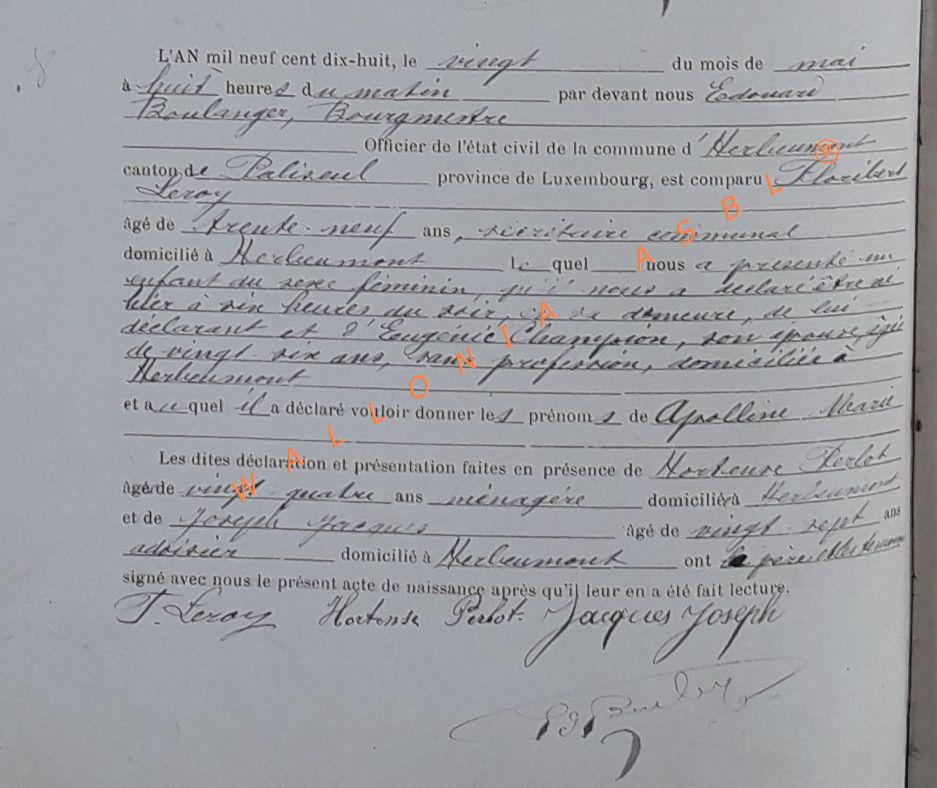 8
L'AN mil neuf cent dix-huit, le vingt du mois de mai
à huit heures du matin par devant nous Edouard
Boulanger, Bourgmestre
Officier de l'état civil de la commune d'Herbeumont
canton de Paliseul province de Luxembourg, est comparu Floribert
Leroy
âgé de trente-neuf ans, secrétaire communal
domicilié à Herbeumont lequel nous a présenté un
enfant du sexe féminin, qu'il nous a déclaré être né
hier à six heures du soir, en sa demeure, de lui
déclarant et d'Eugénie Champion, son épouse, âgée
de vingt-six ans, sans profession, domiciliée à
Herbeumont
et auquel il a déclaré vouloir donner les prénoms de Apolline Marie
Les dites déclaration et présentation faites en présence de Hortense Perlot
âgée de vingt-quatre ans ménagère domiciliée à Herbeumont
et de Joseph Jacques âgé de vingt-sept ans
ardoisier domicilié à Herbeumont ont le père et les témoins
signé avec nous le présent acte de naissance après qu'il leur en a été fait lecture.
F. Leroy Hortense Perlot. Jacques Joseph
WALLONIA ASBL ®